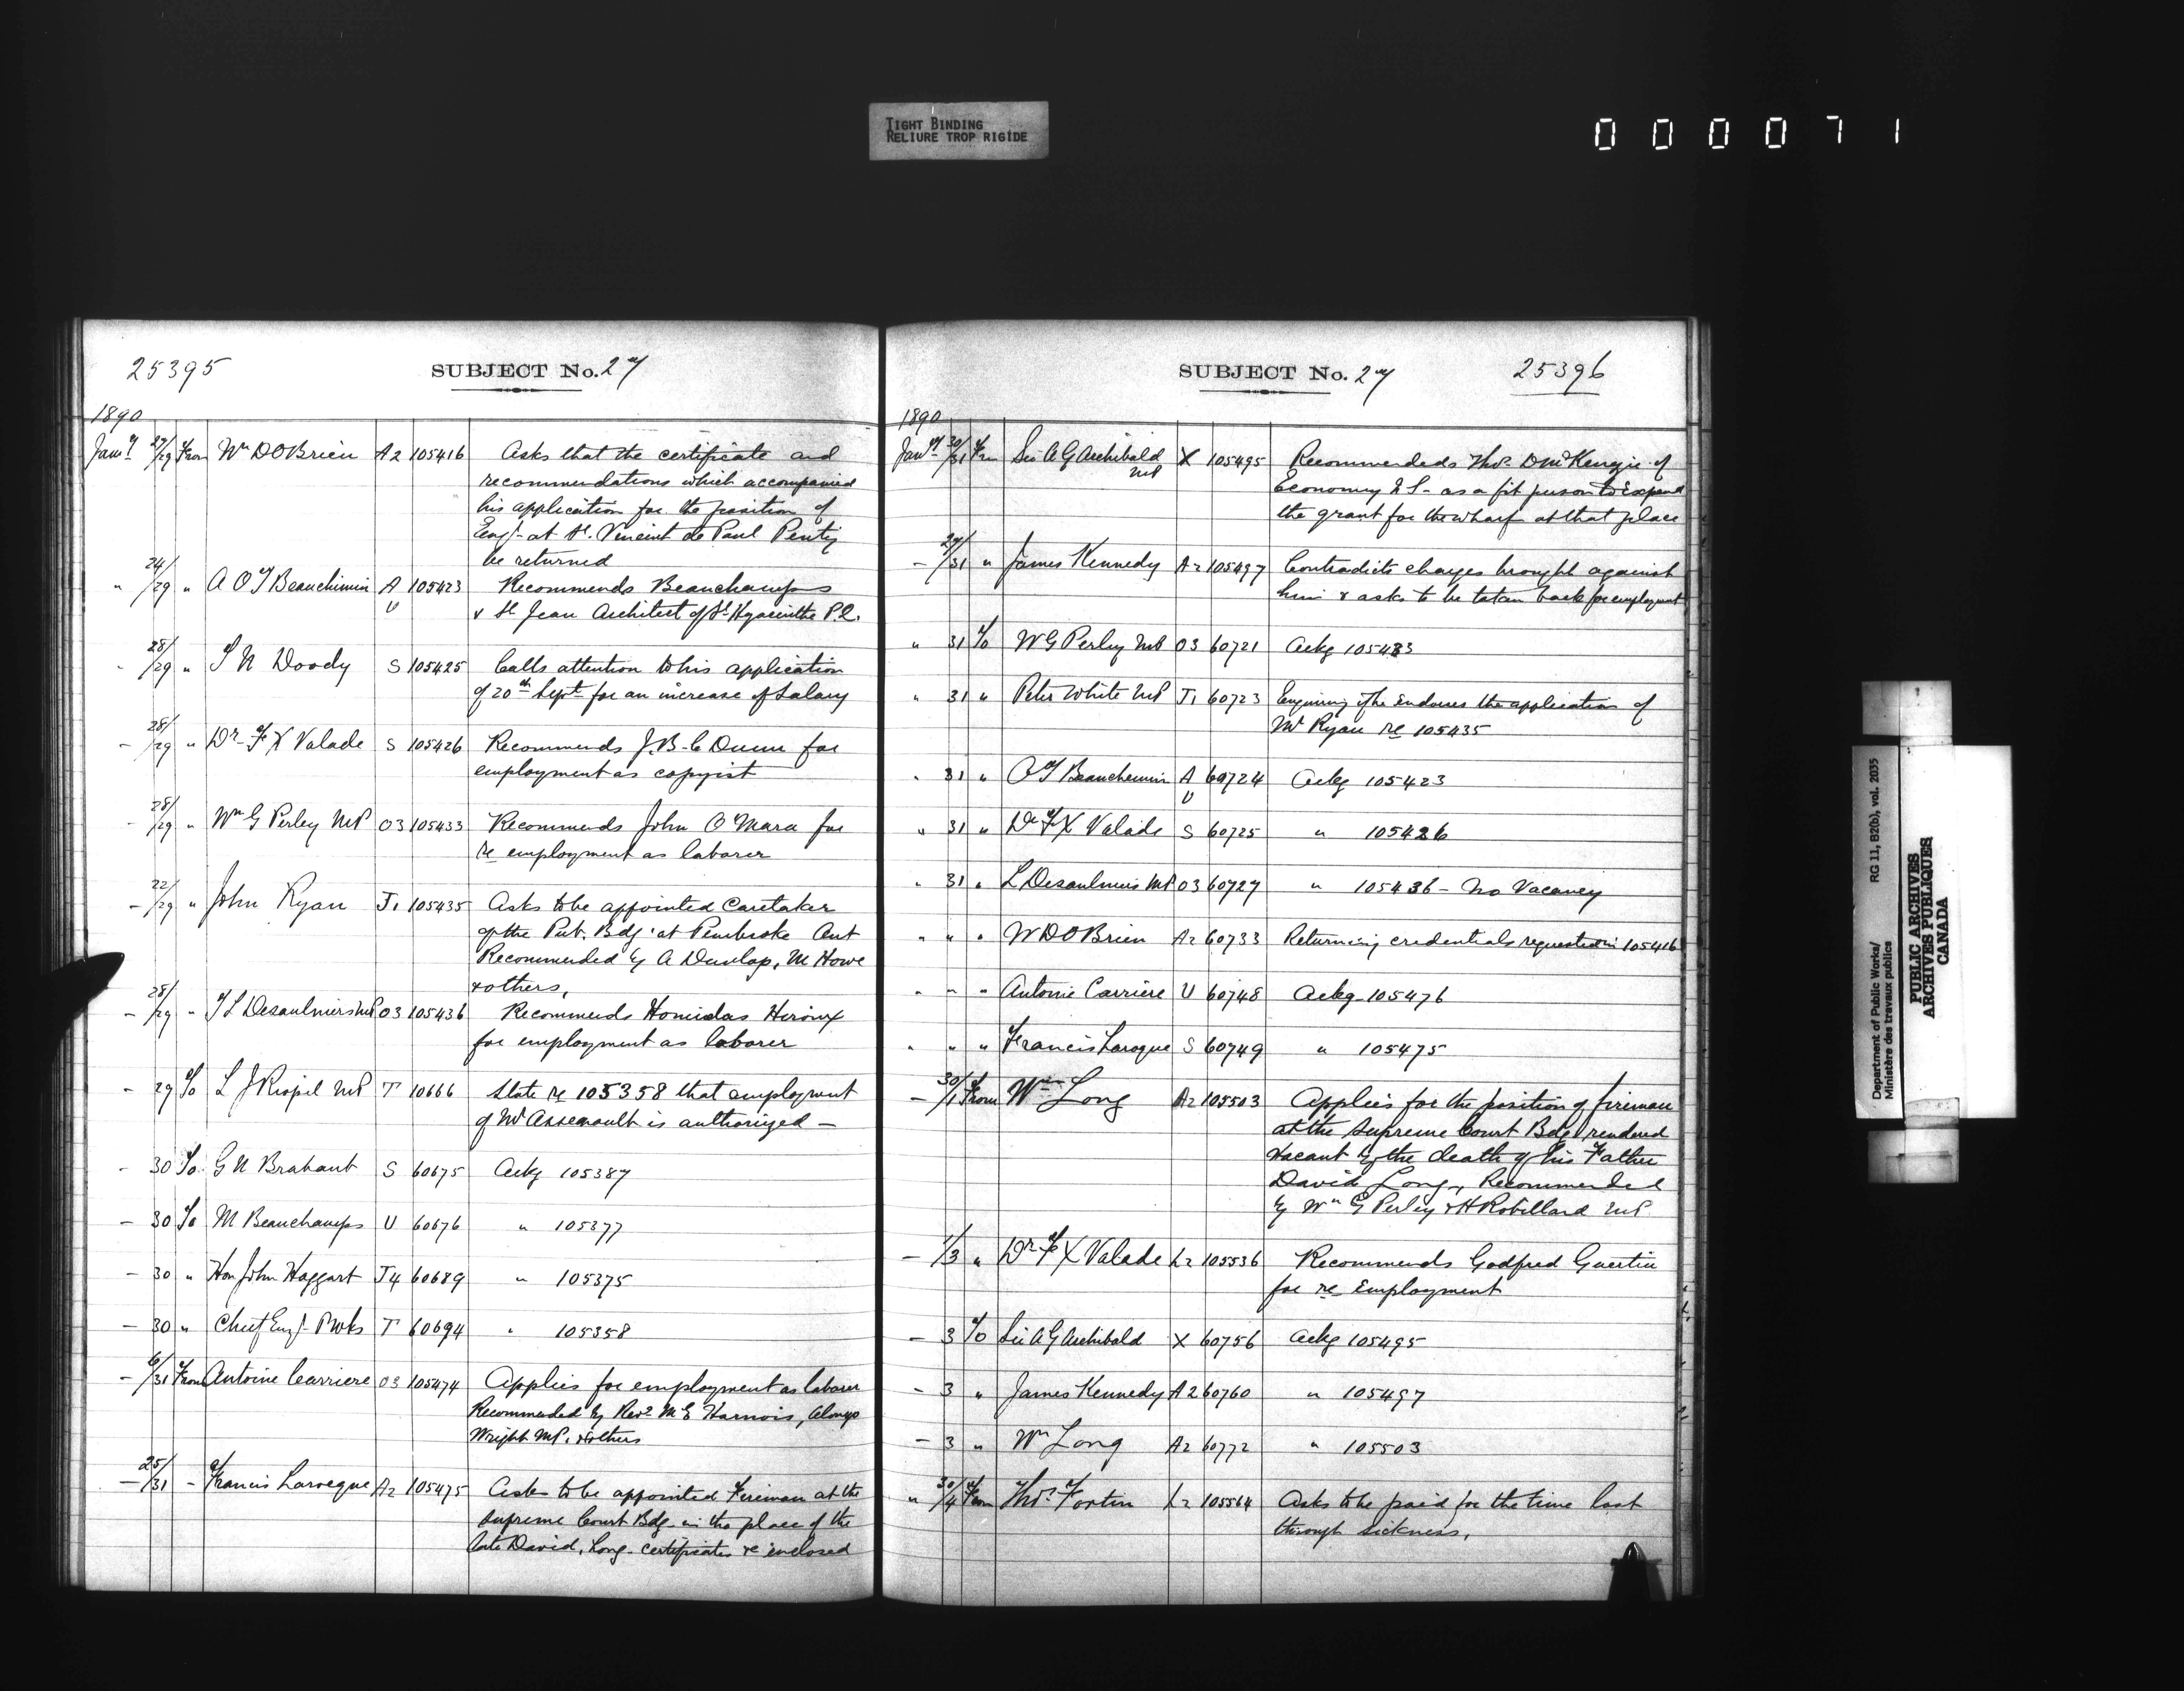 TIGHT BINDING
RELIURE TROP RIGIDE
000071
25395
SUBJECT No. 27
1890
Jany 27/29 From Wm D OBrien A2 105416 Asks that the certificate and
recommendations which accompanied
his application for the position of
Engr at St. Vincent de Paul Penty
be returned
" 24/29 " A O T Beauchemin A U 105423 Recommends Beauchamps
& St Jean Architect of St Hyacinthe P.Q.
" 28/29 " T N Doody S 105425 Calls attention to his application
of 20th Sept for an increase of Salary
- 28/29 " Dr F X Valade S 105426 Recommends J. B. C Dunn for
employment as copyist
- 28/29 " Wm G Perley MP O3 105433 Recommends John O'Mara for
re employment as laborer
- 22/29 " John Ryan J1 105435 Asks to be appointed Caretaker
of the Pub. Bdg. at Pembroke Ont
Recommended by A Dunlop, M Howe
& others,
- 28/29 " F L Desaulniers MP O3 105436 Recommends Homidas Heroux
for employment as laborer
- 29 To L J Riopel MP T 10666 State re 105358 that employment
of Mr Assenault is authorized -
- 30 To G N Brabant S 60675 Ackg 105387
- 30 To M Beauchamps U 60676 " 105377
- 30 " Hon John Haggart J4 60689 " 105375
- 30 " Chief Engr P Wks T 60694 " 105358
- 6/31 From Antoine Carriere O3 105474 Applies for employment as laborer
Recommended by Revd M E Harnois, Alonzo
Wright MP. & others
- 25/31 - Francis Larocque A2 105475 Asks to be appointed Fireman at the
Supreme Court Bdg. in the place of the
late David, Long - certificates &c enclosed
SUBJECT No. 27
25396
1890
Jany 30/31 From Sir A G Archibald MP X 105495 Recommendeds Thos. D McKenzie of
Economy N S - as a fit person to Expend
the grant for the wharf at that place
- 29/31 " James Kennedy A2 105497 Contradicts charges brought against
him & asks to be taken back for employment
" 31 To W G Perley MP O3 60721 Ackg 105433
" 31 " Peter White MP J1 60723 Enquiring if he endorses the application of
Mr Ryan re 105435
" 31 " O T Beauchemin A U 60724 Ackg 105423
" 31 " Dr F X Valade S 60725 " 105426
" 31 " L Desaulniers MP O3 60727 " 105436 - No Vacancy
" " " W D O Brien A2 60733 Returning credentials requested in 105416
" " " Antoine Carriere U 60748 Ackg 105476
" " " Francis Laroque S 60749 " 105475
- 30/1 From Wm Long A2 105503 Applies for the position of fireman
at the Supreme Court Bdg rendered
vacant by the death of his Father
David Long, Recommended
by Wm G Perley & H Robillard MP.
- 1/3 " Dr F X Valade L2 105536 Recommends Godfred Guertin
for re Employment
- 3 To Sir A G Archibald X 60756 Ackg 105495
- 3 " James Kennedy A2 60760 " 105497
- 3 " Wm Long A2 60772 " 105503
" 30/4 From Thos. Fortin L2 105564 Asks to be paid for the time lost
through sickness,
Department of Public Works/
Ministère des travaux publics
RG 11, B2(b), vol. 2035
PUBLIC ARCHIVES
ARCHIVES PUBLIQUES
CANADA